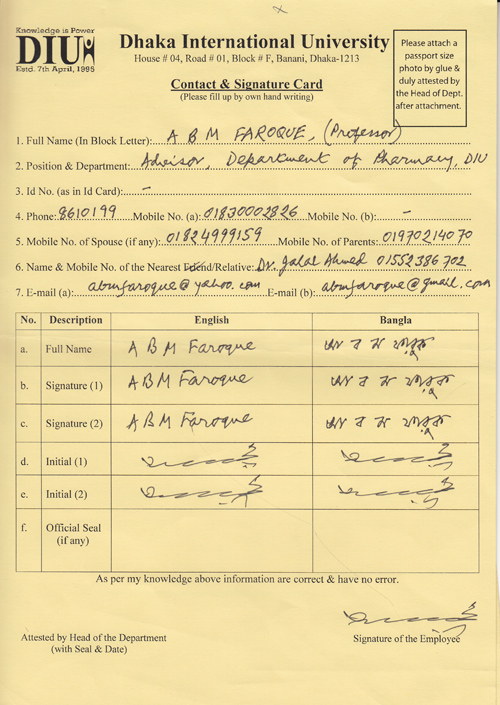 Knowledge is Power
DIU
Estd. 7th April, 1995
Dhaka International University
House # 04, Road # 01, Block # F, Banani, Dhaka-1213
Contact & Signature Card
(Please fill up by own hand writing)
Please attach a
passport size
photo by glue &
duly attested by
the Head of Dept.
after attachment.
1. Full Name (In Block Letter): A B M FAROQUE, (Professor)
2. Position & Department: Advisor, Department of Pharmacy, DIU
3. Id No. (as in Id Card): –
4. Phone: 8610199 Mobile No. (a): 01830002826 Mobile No. (b): –
5. Mobile No. of Spouse (if any): 01824999159 Mobile No. of Parents: 01970214070
6. Name & Mobile No. of the Nearest Friend/Relative: Dr. Jalal Ahmed 01552386702
7. E-mail (a): abmfaroque@yahoo.com E-mail (b): abmfaroque@gmail.com
No. Description English Bangla
a. Full Name A B M Faroque এ বি এম ফারুক
b. Signature (1) A B M Faroque এ বি এম ফারুক
c. Signature (2) A B M Faroque এ বি এম ফারুক
d. Initial (1)
e. Initial (2)
f. Official Seal
(if any)
As per my knowledge above information are correct & have no error.
Attested by Head of the Department
(with Seal & Date)
Signature of the Employee